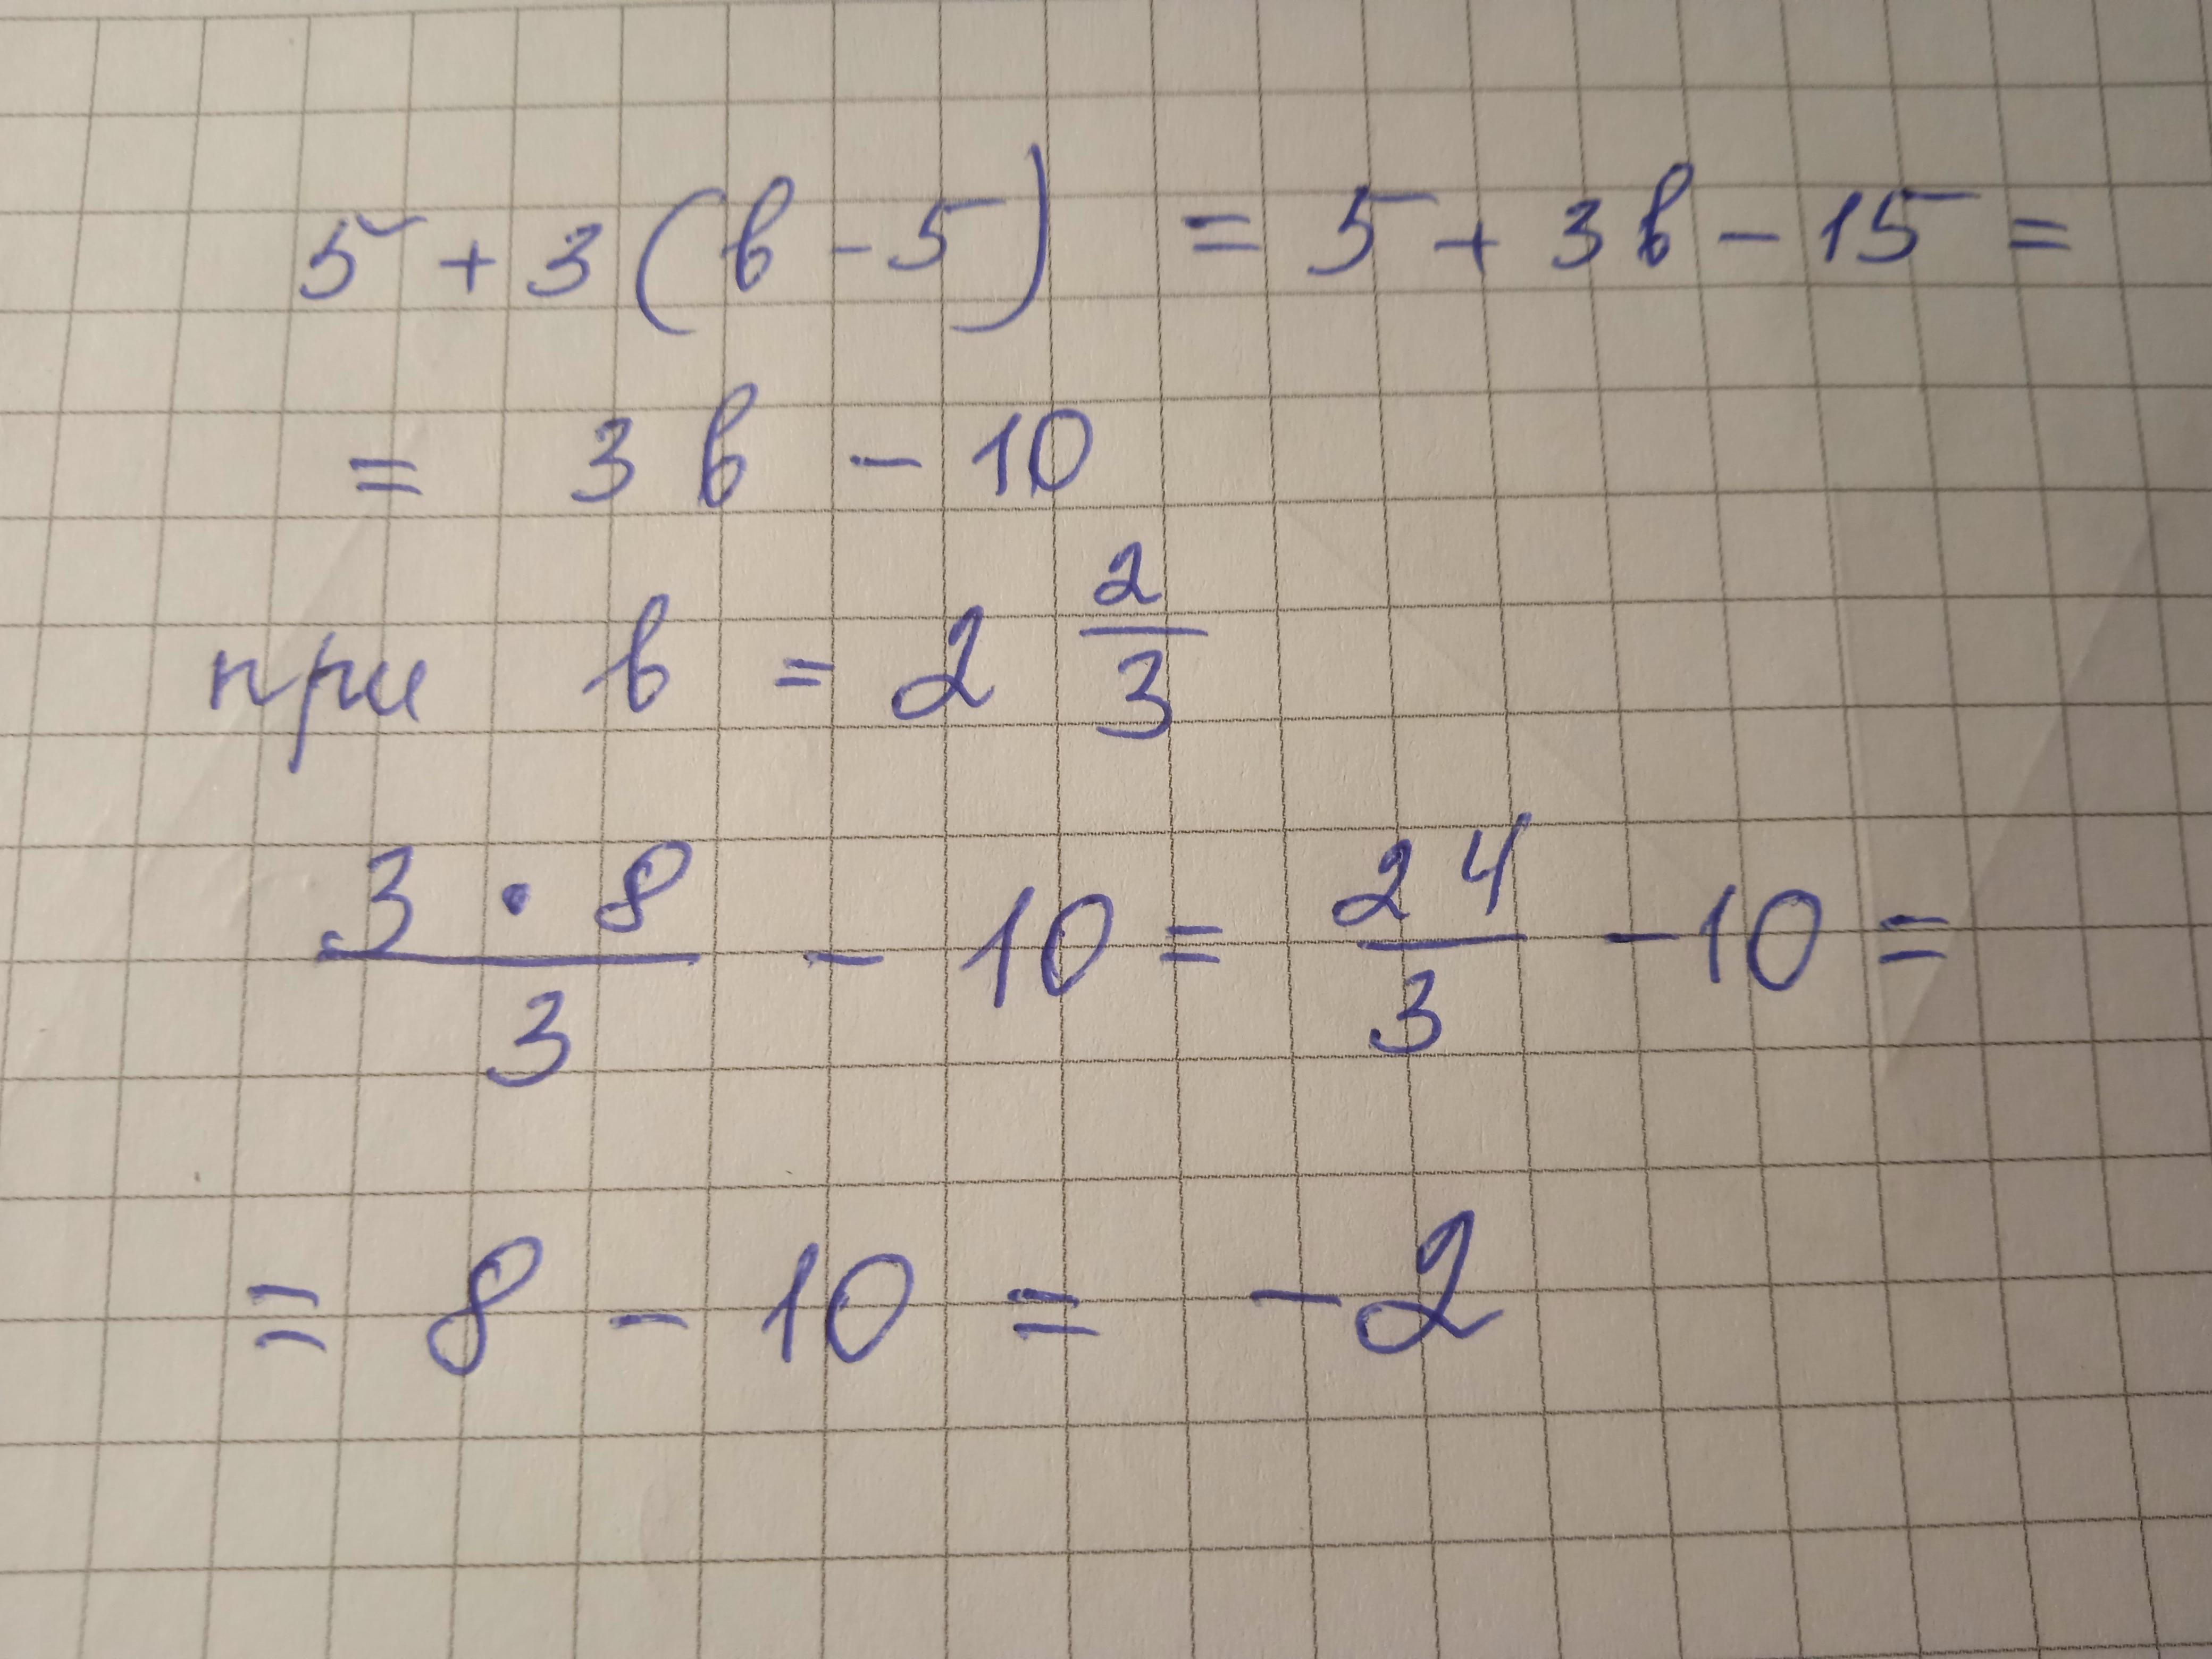 5 + 3 (в - 5) = 5 + 3в - 15 =
= 3в - 10
при в = 2 2/3
3 · 8 / 3 - 10 = 24/3 - 10 =
= 8 - 10 = -2